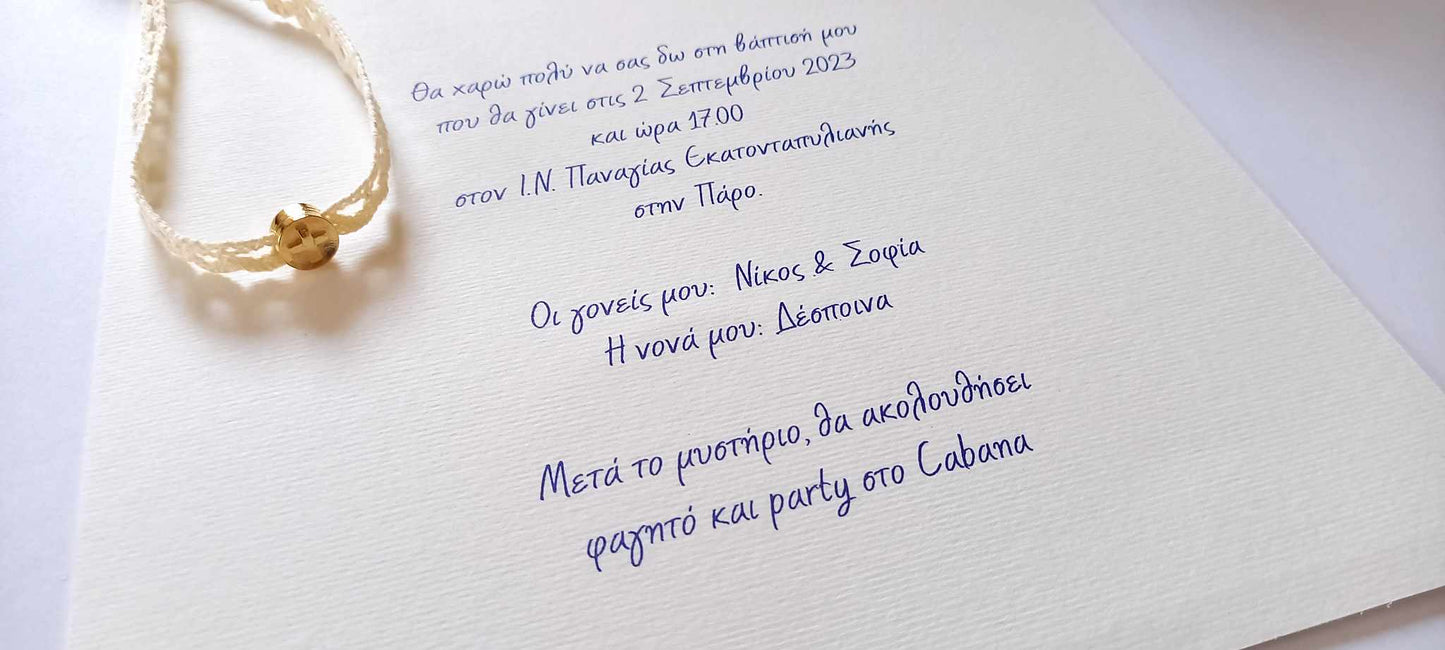 Θα χαρώ πολύ να σας δω στη βάπτισή μου
που θα γίνει στις 2 Σεπτεμβρίου 2023
και ώρα 17.00
στον Ι.Ν. Παναγίας Εκατονταπυλιανής
στην Πάρο.
Οι γονείς μου: Νίκος & Σοφία
Η νονά μου: Δέσποινα
Μετά το μυστήριο, θα ακολουθήσει
φαγητό και party στο Cabana